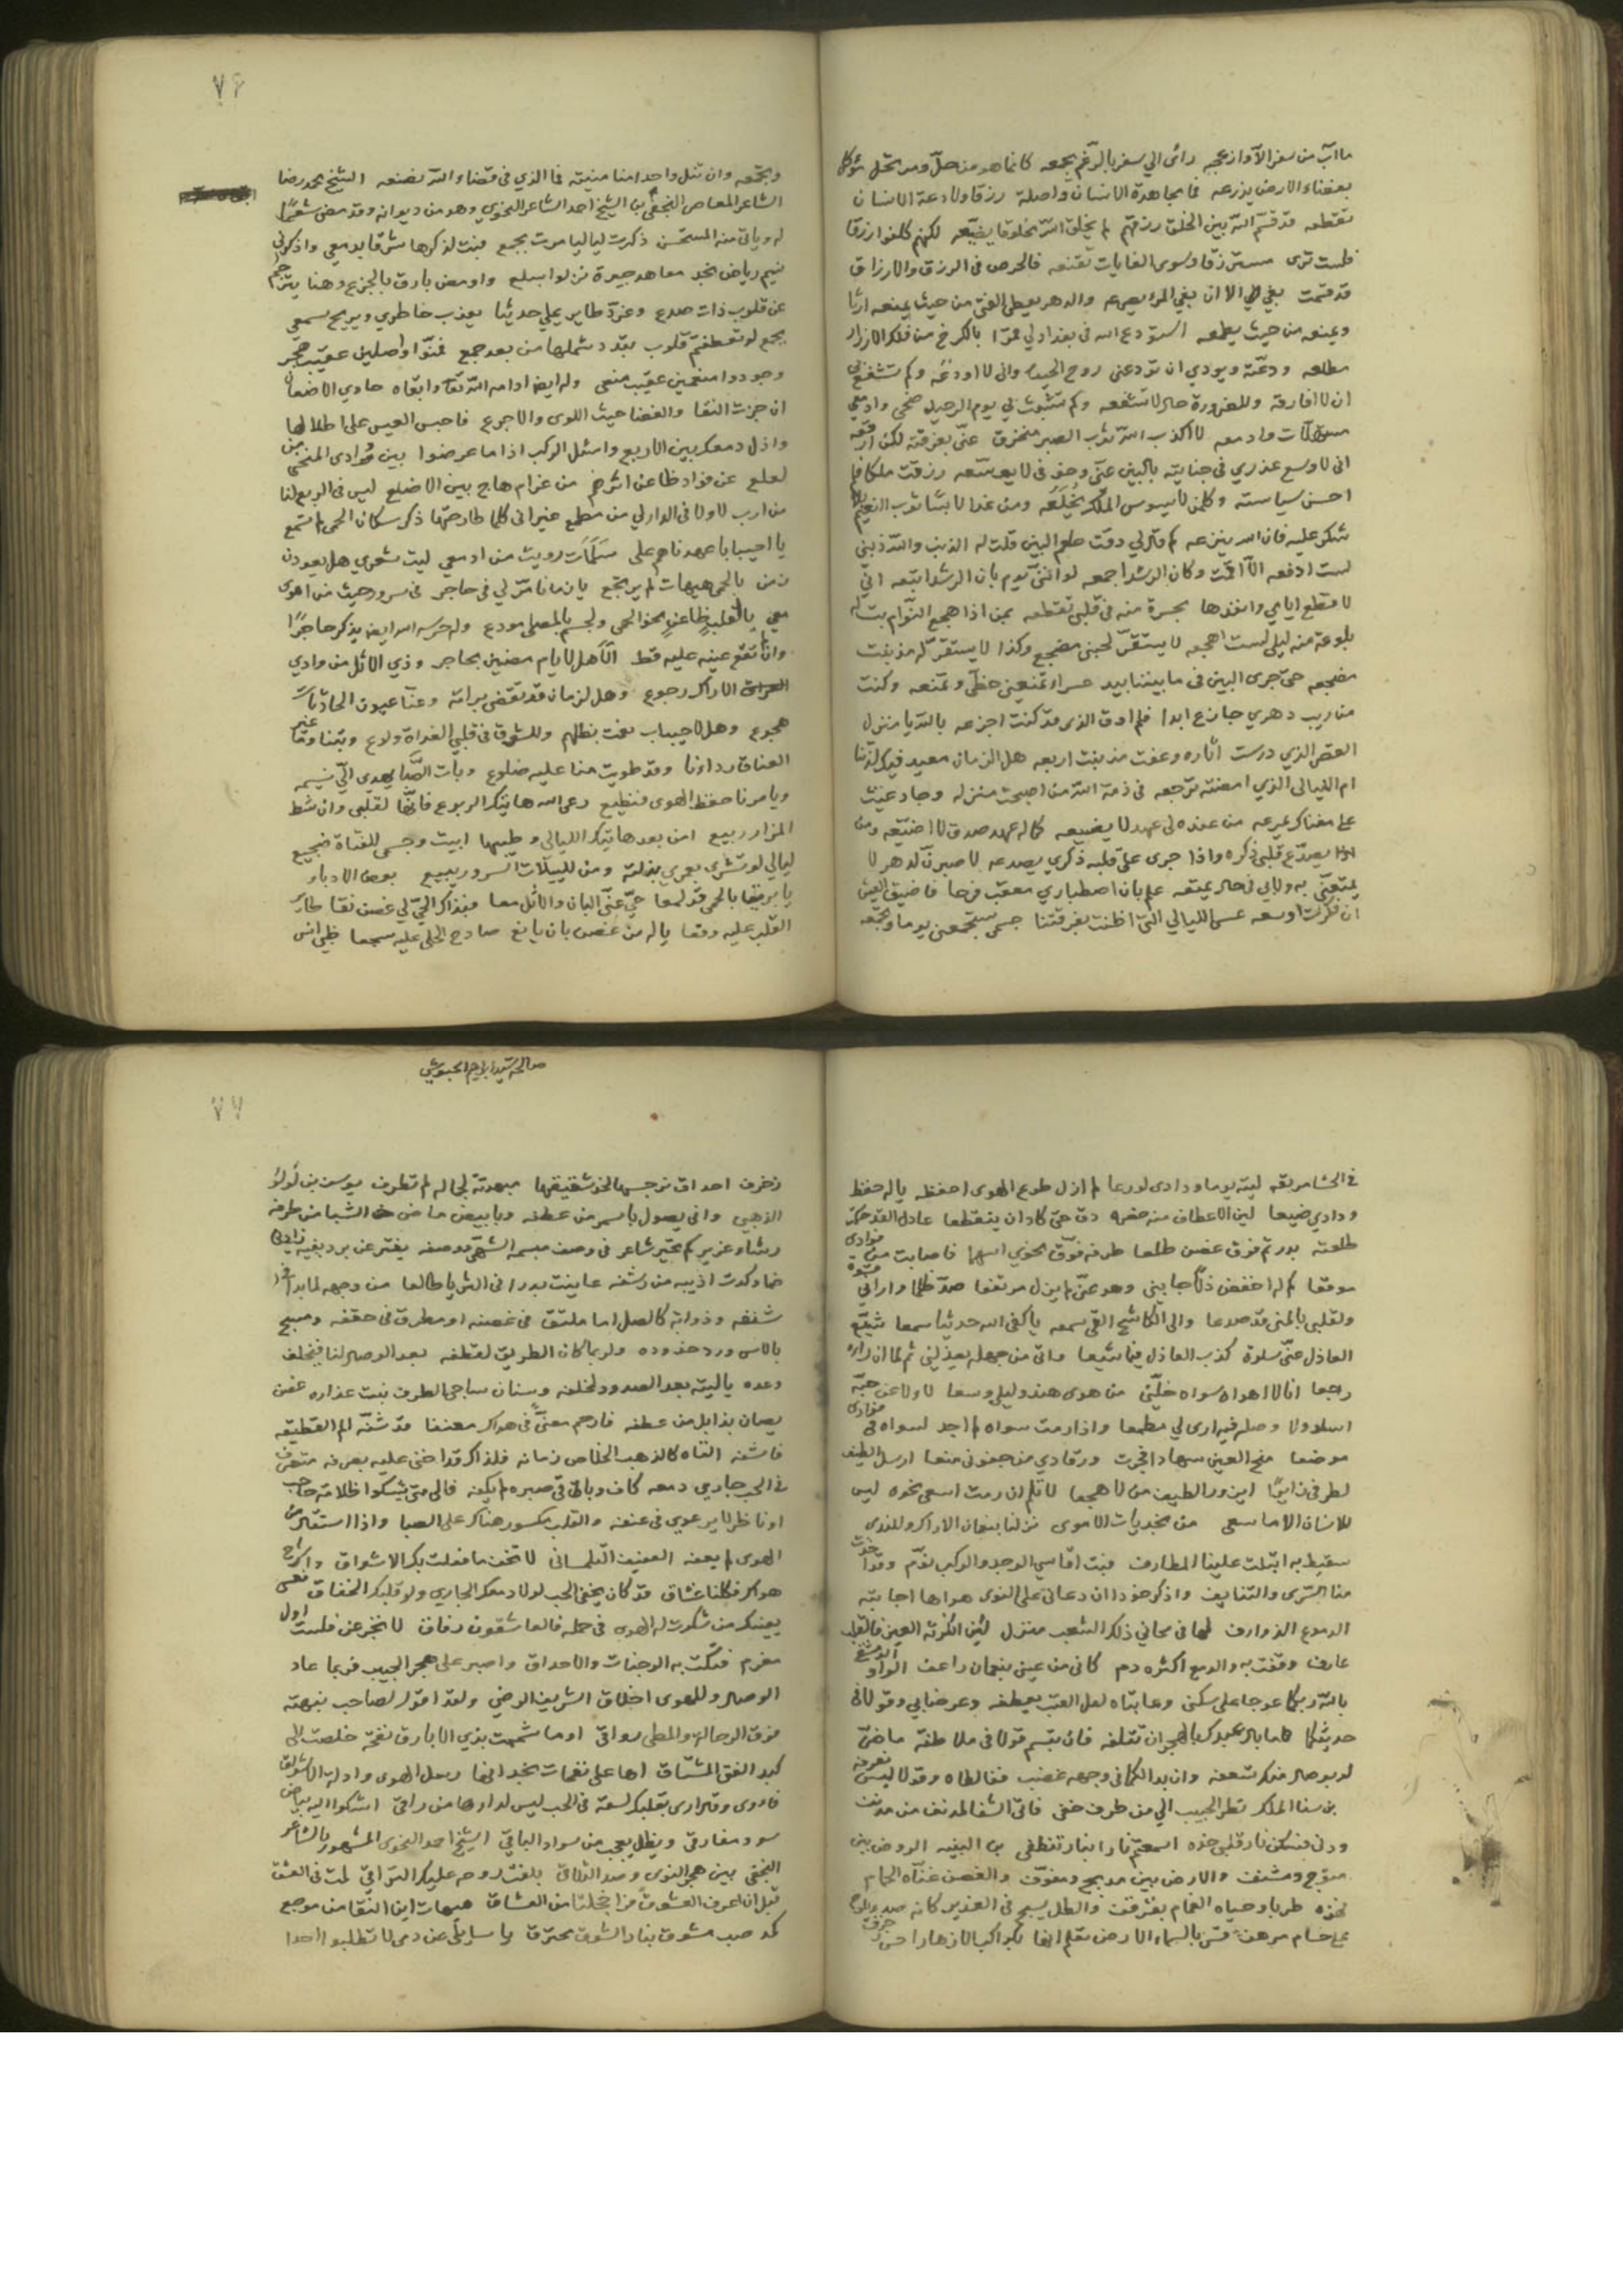 ٧٦
ما آب من سفر الا وازعجه رائ الي سفر بالرغم يجمعه كانما هو من حل ومرتحل موكل
بفضاء الارض يذرعه فما مجاهدة الانسان واصلة رزقا ولا دعة الانسان
تقطعه قد قسم الله بين الخلق رزقهم لم يخلق الله مخلوقا يضيعه لكنهم كلفوا رزقا
فلست ترى مسترزقا وسوى الغايات تقنعه فالحرص في الرزق والارزاق
قد قسمت بغي الا ان بغي المرا يصرعه والدهر يعطي الفتى من حيث يمنعه ارثا
ويمنعه من حيث يطمعه استودع الله في بغداد لي قمرا بالكرخ من فلك الازرار
مطلعه ودعته وبودي ان تودعني روح الحياة واني لا اودعه وكم تشفع بي
ان لا افارقه وللضرورة حال لا تشفعه وكم تشبث بي يوم الرحيل ضحى وادمعي
مستهلات وادمعه لا اكذب الله ثوب الصبر منخرق عني بفرقته لكن ارقعه
اني لاوسع عذري في جنايته بالبين عني وجفني لا يوسعه رزقت ملكا فلم
احسن سياسته وكل من لا يسوس الملك يخلعه ومن غدا لابسا ثوب النعيم بلا
شكر عليه فان الله ينزعه كم قائل لي ذقت طعم البين قلت له الذنب والله ذنبي
لست ادفعه الا اقمت وكان الرشد اجمعه لو انني يوم بان الرشد اتبعه اني
لاقطع ايامي وانفدها بحسرة منه في قلبي تقطعه بمن اذا هجع النوام بت له
بلوعة منه ليلي لست اهجعه لا يستقر لجنبي مضجع وكذا لا يستقر له مذ بنت
مضجعه حتى جرى البين في ما بيننا بيد عسراء تمنعني حظي وتمنعه وكنت
من ريب دهري جازعا ابدا فلم اوق الذي قد كنت اجزعه بالله يا منزل
القصر الذي درست اثاره وعفت مذ بنت اربعه هل الزمان معيد فيك لذتنا
ام الليالي الذي امضته ترجعه في ذمة الله من اصبحت منزله وجاد غيث
على مغناك يمرعه من عنده لي عهد لا يضيعه كما له عهد صدق لا اضيعه ومن
يصدع قلبي ذكره واذا جرى على قلبه ذكري يصدعه لاصبرن لدهر لا
يمتعني به ولا بي في حال يمتعه علم بان اصطباري معقب فرجا فاضيق العيش
ان فكرت اوسعه عسى الليالي التي اظنت بفرقتنا جسمي ستجمعني يوما وتجمعه
وتجمعه وان تنل واحدا منا منيته فما الذي في قضاء الله يصنعه الشيخ محمد رضا
الشاعر المعاصر النجفي بن الشيخ احمد الشاعر النحوي وهو من ديوانه وقد مضى شعرا
له وياتي منه المستحسن ذكرت لياليا مرت بجمع فبت لذكرها شرقا بدمعي واذكرني
نسيم رياض نجد معاهد جيرة نزلوا بسلع واومض بارق بالجزع وهنا يترجم
عن قلوب ذات صدع وغرد طاير يملي حديثا يعذب خاطري ويريح سمعي
بجمع لو تعطفتم قلوب تبدد شملها من بعد جمع فمنوا واصلين عقيب هجر
وجودوا منعمين عقيب منعي وله ايضا ادامه الله تعالى وابقاه حادي الاضعان
ان جزت النقا والغضا حيث اللوى والاجرع فاحبس العيس على اطلالها
واذل دمعك بين الاربع واسئل الركب اذا ما عرضوا بين وادي المنحنى من
لعلع عن فؤاد ظاعن اثرهم من غرام هاج بين الاضلع ليس في الربع لنا
من ارب لا ولا في الدار لي من مطمع غير اني كلما طارحتها ذكر سكان الحمى لم تسمع
يا احيبابا عهدناهم على سلمات رويت من ادمعي ليت شعري هل يعودن
زمن بالحمى هيهات لم يرتجع يا زمانا مر لي في حاجر في سرور حيث من اهوى
معي يا لقلب ظاعن نحو الحمى ولجسم بالمصلى مودع وله حرسه الله ايضا يذكر حاجرا
وان لم تقع عينه عليه قط اهل لايام مضين بحاجر وذي الاثل من وادي
الاراك رجوع وهل لزمان قد تقضى برامة وعنا عيون الحادثات
هجوع وهل لاحيباب نعمت بظلهم وللشوق في قلبي الغداة ولوع وبتنا وقد
العناق رداؤنا وقد طويت منا عليه ضلوع وبات الصبا يهدي الي نسيمه
ويامرنا حفظ الهوى فنطيع رعى الله هاتيك الربوع فانها لقلبي وان شط
المزار ربيع امن بعد هاتيك الليالي وطيبها ابيت وجسمي للقتاة ضجيع
ليالي لو تشرى بعمري بذلته ومن لليلات السرور يبيع بعض الادباء
يا بريقا بالحمى قد لمعا حي عني البان والاثل معا فبذاك الحي لي غصن نقا طاير
القلب عليه وقعا ياله من غصن بان يانع صادح الحلي عليه سجعا ظبي انس
٧٧
في الحشا مربعه ليته يوما ودادي لو رعا لم ازل طوع الهوى احفظه ياله حفظ
ودادي ضيعا لين الاعطاف منه خصره دق حتى كاد ان ينقطعا عادل القد حكت
طلعته بدر تم فوق غصن طلعا طرفه فوق نحوي اسهما فاصابت من فؤادي
موقعا كم له اخفض ذلا جانبي وهو عني لم يزل مرتفعا صد ظلما واراني
ولقلبي بالمنى قد صدعا والى الكاشح القى سمعه ياكفى الله حديثا سمعا شنع
العاذل عني سلوة كذب العاذل فيما شيعا واتى من جهله يعذلني ثم لما ان راه
رجعا انا لا اهواه سواه خلني من هوى هند وليلى وسعا لا ولا عن حبه
اسلو ولا وصله فيه ارى لي مطمعا واذا رمت سواه لم اجد لسواه في فؤادي
موضعا منح العين سهادا فجرت ورقادي من جفوني منعا ارسل الطيف
لطرفي زائرا اين ورد الطيف ممن لا هجعا لا تلم ان رمت اسعى نحوه ليس
للانسان الا ما سعى من نجديات الاموى نزلنا بنعمان الاراك وللندى
سقيط به ابتلت علينا المطارف فبت اقاسي الوجد والركب نوم وقد اخذت
منا السرى والتنايف واذكر خودا ان دعاني على النوى هواها اجابته
الدموع الذوارف لها في محاني ذلك الشعب منزل لئن انكرته العين فالقلب
عارف وقفت به والدمع اكثره دم كاني من عيني بنعمان راعف الواو الدمشقي
بالله ربكما عوجا على سكني وعاتباه لعل العتب يعطفه وعرضا بي وقولا في
حديثكما ما بال عبدك بالهجران تتلفه فان تبسم قولا في ملاطفة ما ضر
لو بوصال منك تسعفه وان بدا لكما في وجهه غضب فغالطاه وقولا ليس نعرفه
بن سنا الملك نظر الحبيب الي من طرف خفي فاتى الشفا لمدنف من مدنف
ودنى فسكن نار قلبي خده اسمعتم نارا بنار تنطفي بن النبيه الروض بين
متوج ومشنف والارض بين مدبج ومفوف والغصن غناه الحمام
فهزه طربا وحياه الغمام بقرقف والظل يسبح في الغدير كانه صدء يلوح
على حسام مرهف قس بالسماء الارض تعلم انها بكواكب الازهار احسن زخرف
صاله سيد ابراهيم الحبوشي
زخرف احداق نرجسها لخد شقيقها مبهوتة لجماله لم تطرف يوسف بن لولو
الذهبي وافي يصول باسمر من عطفه وبابيض ماضي الشبا من طرفه
رشاء غرير كم تحير شاعر في وصف مبسمه الشهي ووصفه يفتر عن برد بفيه زادني
ظما وكدت اذيبه من رشفه عاينت بدرا في الثريا طالعا من وجهه لما بدا في
شنفه وذوابة كالصل اما ملتق في غصنه او مطرق في حقفه ومسيج
بالاس ورد خدوده ولربما كان الطريق لقطفه يعد الوصال لنا فيخلف
وعده ياليته يعد الصدود لخلفه وسنان ساجي الطرف نبت عذاره غض
يصان بذابل من عطفه فارحم معنى في هواك معنفا قد شفه الم القطيعة
فاشفه القاه كالذهب الخلاص زمانه فلذاك قد اخنى عليه بصرفه متصرف
في الحب جاري دمعه كاف وباقي صبره لم يكفه فالى متى يشكوا ظلامة حاجب
او ناظر لا يرعوي في عنفه والقلب مكسور هناك على الصبا واذا استقال من
الهوى لم يعفه العفيف التلمساني لا تخف ما فعلت بك الاشواق واشرح
هواك فكلنا عشاق قد كان يخفى الحب لولا دمعك الجاري ولولا قلبك الخفاق فعسى
يعينك من شكوت له الهوى في حمله فالعاشقون رفاق لا تجزعن فلست اول
مغرم فتكت به الوجنات والاحداق واصبر على هجر الحبيب فربما عاد
الوصال وللهوى اخلاق الشريف الرضي ولقد اقول لصاحب نبهته
فوق الرحالة والمطي رواقي او ما شممت بذي الابارق نفحة خلصت الى
كبد الفتى المشتاق اها على نفحات نجد انها رسل الهوى وادلة الاشواق
فاروى وقد ارى بقلبك لسعة في الحب ليس لدائها من راقي اشكوا اليه بياض
سود مفارقي ويظل يعجب من سواد الباقي الشيخ احمد النحوي المشهور بالشاعر
النجفي بين هجر النوى وصد التلاقي بلغت روحي عليك التراقي لمت في العشق
قبل ان اعرف العشق فوا خجلتا من العشاق هيهات اين النقا من موجع
كمد صب مشوق بنار الشوق محترق يا سايلي عن دمي لا تطلبوا احدا